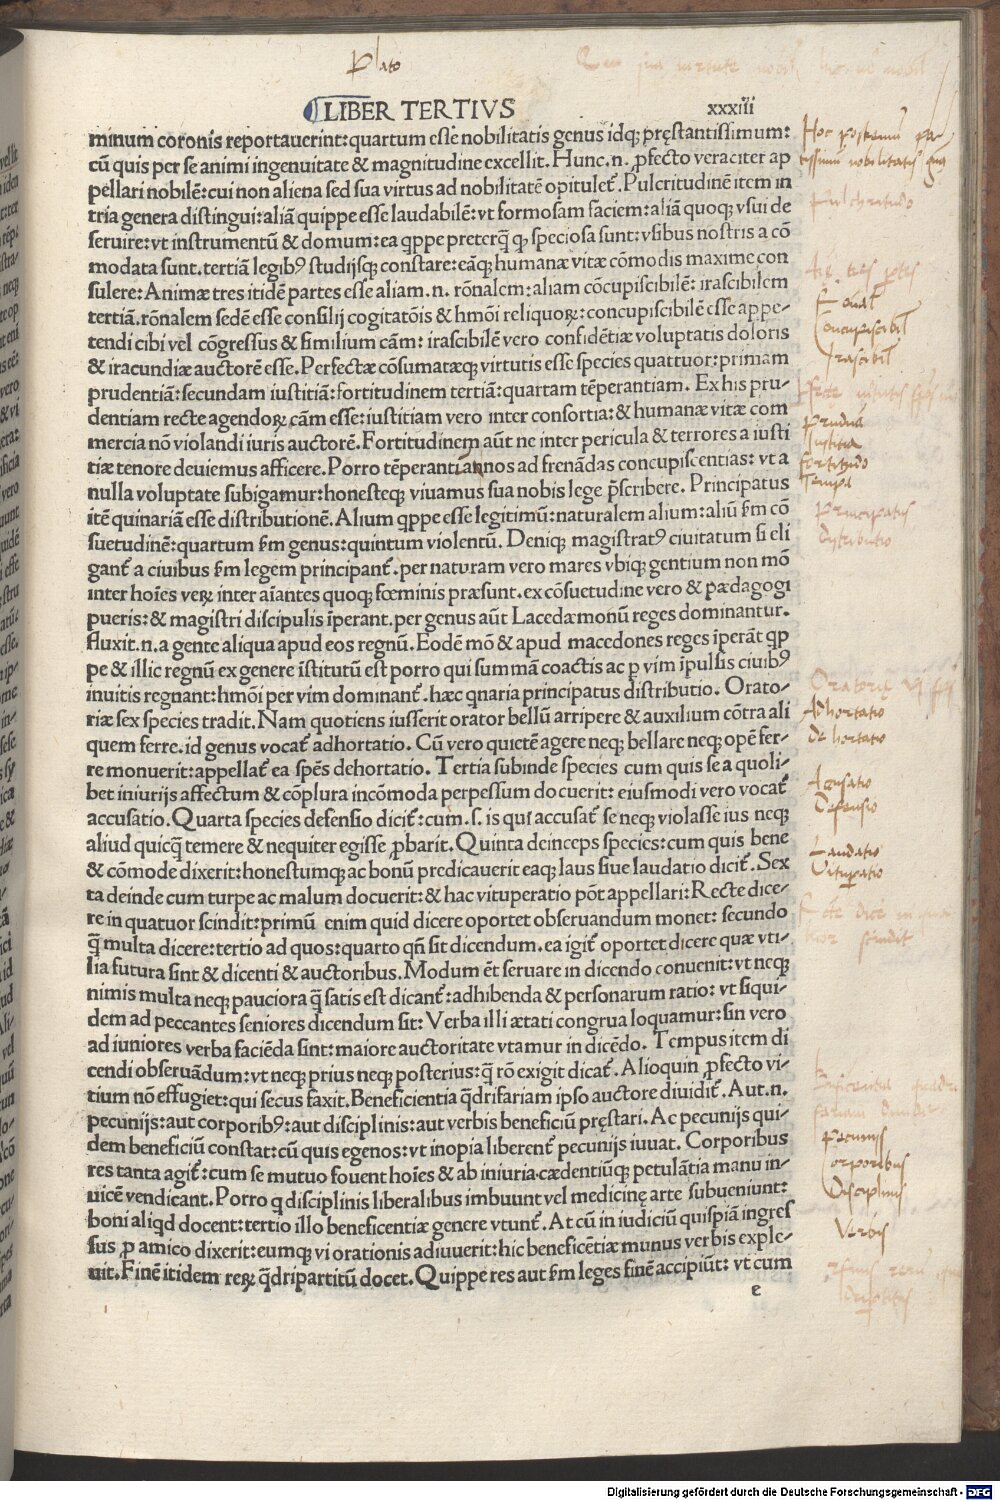 Plato
LIBER TERTIVS xxxiii
minum coronis reportauerint:quartum esse nobilitatis genus idqꝫ pręstantissimum:
cū quis per se animi ingenuitate & magnitudine excellit. Hunc.n. ꝓfecto veraciter ap
pellari nobilē:cui non aliena sed sua virtus ad nobilitatē opituleť. Pulcritudinē item in
tria genera distingui:aliā quippe esse laudabilē:vt formosam faciem:aliā quoqꝫ vsui de
seruire:vt instrumentū & domum:ea qppe preterq̄ ꝙ speciosa sunt:vsibus nostris a cō
modata sunt.tertiā legibꝰ studijsqꝫ constare:eāqꝫ humanæ vitæ cōmodis maxime con
sulere:Animæ tres itidē partes esse aliam.n. rōnalem:aliam cōcupiscibilē: irascibilem
tertiā.rōnalem sedē esse consilij cogitatōis & hmōi reliquoꝝ:concupiscibilē esse appe-
tendi cibi vel cōgressus & similium cām: irascibilē vero confidētiæ voluptatis doloris
& iracundiæ auctorē esse.Perfectæ cōsumatæqꝫ virtutis esse species quattuor:primam
prudentiā:secundam iustitiā:fortitudinem tertiā:quartam tēperantiam. Ex his pru-
dentiam recte agendoꝝ cām esse:iustitiam vero inter consortia:& humanæ vitæ com
mercia nō violandi iuris auctorē.Fortitudinem aūt ne inter pericula & terrores a iusti
tiæ tenore deuiemus afficere.Porro tēperantiā nos ad frenādas concupiscentias: vt a
nulla voluptate subigamur:honesteqꝫ viuamus sua nobis lege p̄scribere. Principatus
itē quinariā esse distributionē.Alium qppe esse legitimū:naturalem alium:aliū ẜm cō
suetudinē:quartum ẜm genus:quintum violentū. Deniqꝫ magistratꝰ ciuitatum si eli
ganť a ciuibus ẜm legem principanť.per naturam vero mares vbiqꝫ gentium non mō
inter hoīes veꝝ inter aīantes quoqꝫ fœminis præsunt.ex cōsuetudine vero & pædagogi
pueris:& magistri discipulis īperant.per genus aūt Lacedæmonū reges dominantur.
fluxit.n.a gente aliqua apud eos regnū.Eodē mō & apud macedones reges īperāt qp
pe & illic regnū ex genere īstitutū est porro qui summā coactis ac p vim īpulsis ciuibꝰ
inuitis regnant:hmōi per vim dominanť.hæc qnaria principatus distributio. Orato-
riæ sex species tradit.Nam quotiens iusserit orator bellū arripere & auxilium cōtra ali
quem ferre.id genus vocať adhortatio. Cū vero quietē agere neqꝫ bellare neqꝫ opē fer-
re monuerit:appellať ea spēs dehortatio. Tertia subinde species cum quis se a quoli-
bet iniurijs affectum & cōplura incōmoda perpessum docuerit: eiusmodi vero vocať
accusatio.Quarta species defensio diciť:cum.s.is qui accusať se neqꝫ violasse ius neqꝫ
aliud quicq̄ temere & nequiter egisse ꝓbarit.Quinta deinceps species:cum quis bene
& cōmode dixerit:honestumqꝫ ac bonū predicauerit eaqꝫ laus siue laudatio diciť.Sex
ta deinde cum turpe ac malum docuerit:& hac vituperatio pōt appellari:Recte dice-
re in quatuor scindit:primū enim quid dicere oportet obseruandum monet: secundo
q̄ multa dicere:tertio ad quos:quarto qn̄ sit dicendum.ea igiť oportet dicere quæ vti-
lia futura sint & dicenti & auctoribus.Modum ēt seruare in dicendo conuenit:vt neqꝫ
nimis multa neqꝫ pauciora q̄ satis est dicanť:adhibenda & personarum ratio: vt siqui-
dem ad peccantes seniores dicendum sit: Verba illi ætati congrua loquamur:sin vero
ad iuniores verba faciēda sint:maiore auctoritate vtamur in dicēdo. Tempus item di
cendi obseruādum:vt neqꝫ prius neqꝫ posterius:q̄ rō exigit dicať. Alioquin ꝓfecto vi-
tium nō effugiet:qui secus faxit.Beneficientia q̄drifariam ipso auctore diuidiť. Aut.n.
pecunijs:aut corporibꝰ:aut disciplinis:aut verbis beneficiū pręstari. Ac pecunijs qui-
dem beneficiū constat:cū quis egenos:vt inopia liberenť pecunijs iuuat. Corporibus
res tanta agiť:cum se mutuo fouent hoīes & ab iniuria cædentiūqꝫ petulātia manu in-
uicē vendicant.Porro q disciplinis liberalibus imbuunt vel medicinę arte subueniunt:
boni aliqd docent:tertio illo beneficentiæ genere vtunť.At cū in iudiciū quispiā ingres
sus ꝓ amico dixerit:eumqꝫ vi orationis adiuuerit:hic beneficētiæ munus verbis exple-
uit.Finē itidem reꝝ q̄dripartitū docet.Quippe res aut ẜm leges finē accipiūt: vt cum
e
Pulchritudo
Concupiscibil
Irascibil
Prudentia
Iustitia
Fortitudo
Tempa
Principatus
distributio
Adhortatio
Dehortatio
Accusatio
Defensio
Laudatio
Vituperatio
Pecunijs
Corporibus
Disciplinis
Verbis
Digitalisierung gefördert durch die Deutsche Forschungsgemeinschaft - DFG